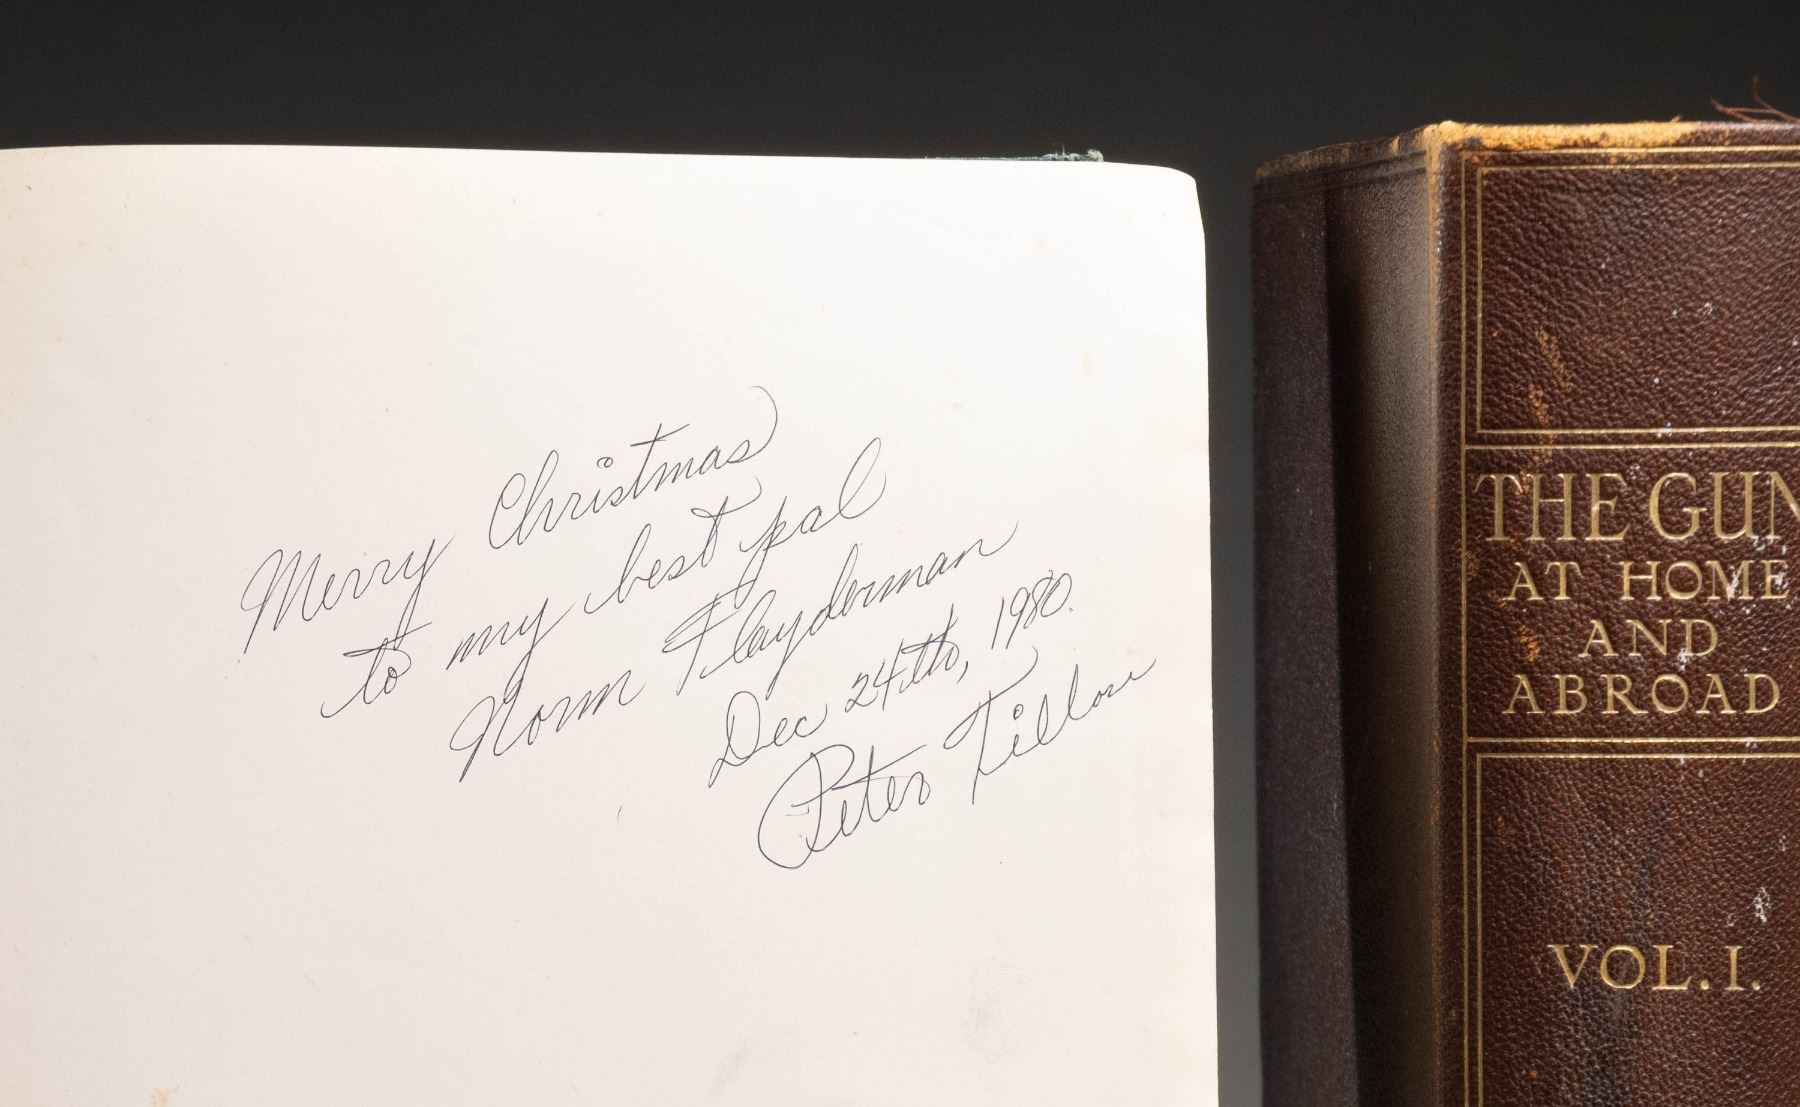 Merry Christmas
to my best pal
Norm Flayderman
Dec 24th, 1980.
Peter Tillou
THE GUN
AT HOME
AND
ABROAD
VOL. I.